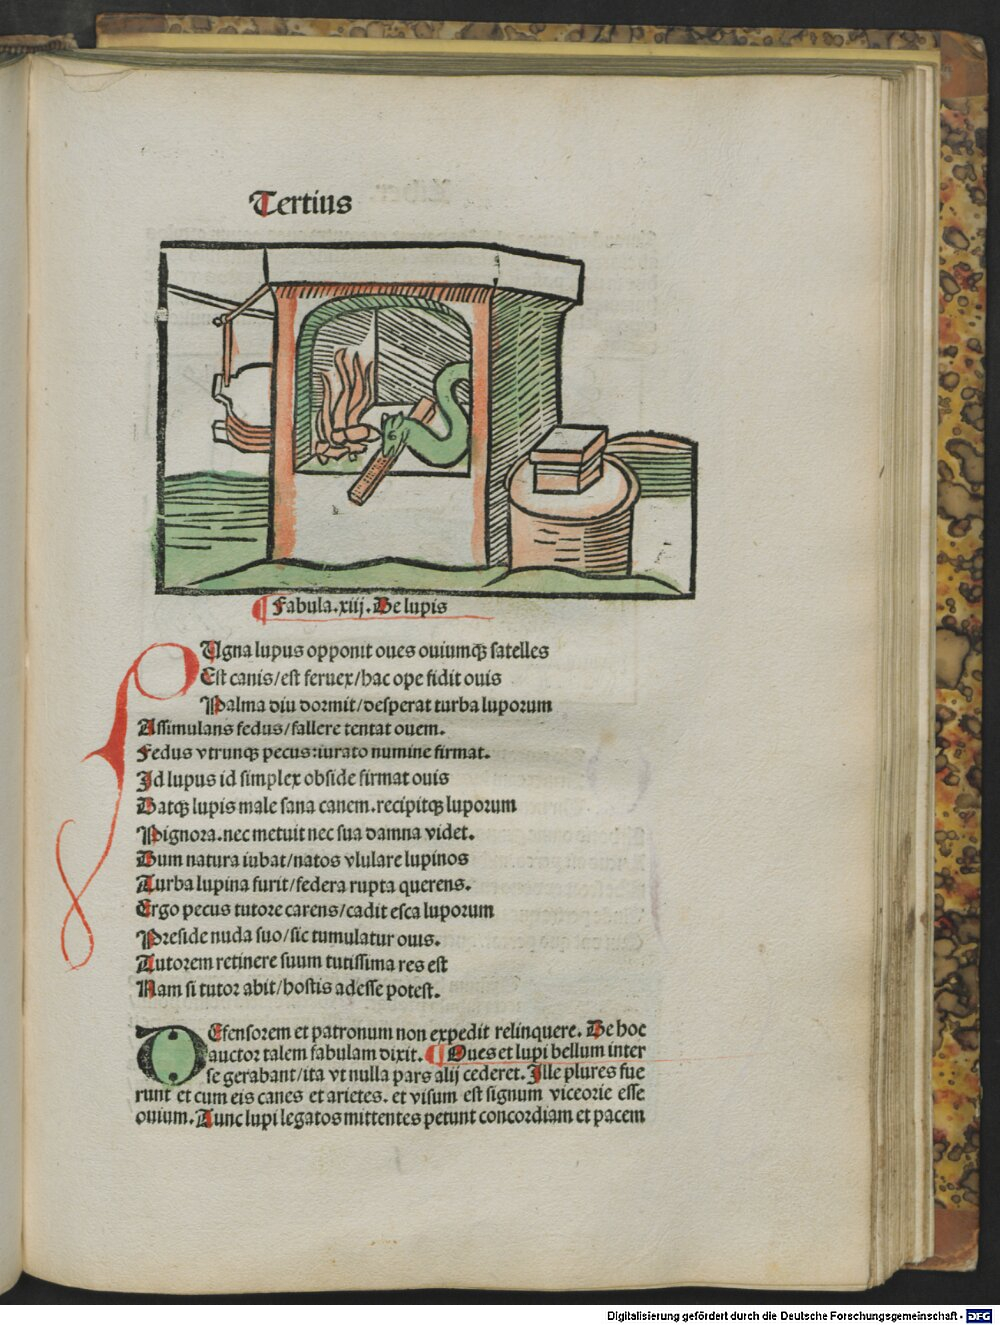 Tertius
¶ Fabula.xiij. De lupis
PUgna lupus opponit oues ouiumqꝫ satelles
Est canis/est feruex/hac ope fidit ouis
Palma diu dormit/desperat turba luporum
Assimulans fedus/fallere tentat ouem.
Fedus vtrunqꝫ pecus:iurato numine firmat.
Id lupus id simplex obside firmat ouis
Datqꝫ lupis male sana canem.recipitqꝫ luporum
Pignora.nec metuit nec sua damna videt.
Dum natura iubat/natos vlulare lupinos
Turba lupina furit/federa rupta querens.
Ergo pecus tutore carens/cadit esca luporum
Preside nuda suo/sic tumulatur ouis.
Tutorem retinere suum tutissima res est
Nam si tutor abit/hostis adesse potest.
DEfensorem et patronum non expedit relinquere. De hoc
auctor talem fabulam dixit. ¶ Oues et lupi bellum inter
se gerabant/ita vt nulla pars alij cederet. Ille plures fue
runt et cum eis canes et arietes. et visum est signum viceorie esse
ouium. Tunc lupi legatos mittentes petunt concordiam et pacem
Digitalisierung gefördert durch die Deutsche Forschungsgemeinschaft - DFG